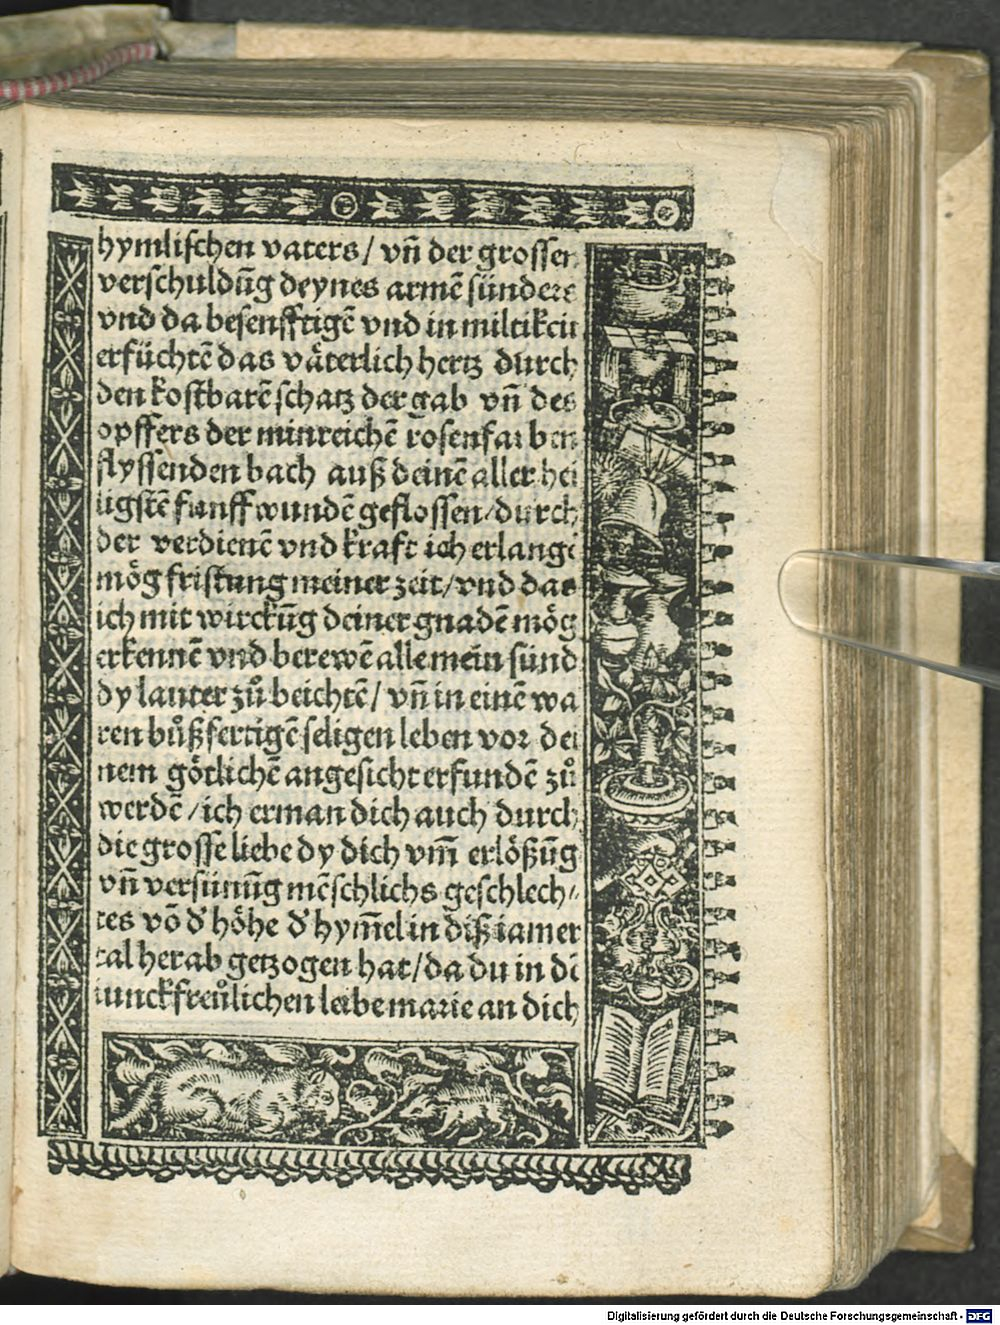 hymlischen vaters/ vñ der grossen
verschuldūg deynes armē sünders
vnd da besenfftigē vnd in miltikeit
erfüchtē das väterlich hertz durch
den kostbarē schatz der gab vñ des
opffers der minreichē rosenfarben
flyssenden bach auß deinē aller hei
ligstē funff wundē geflossen/durch
der verdienē vnd kraft ich erlangē
mög fristung meiner zeit/vnd das
ich mit wirckūg deiner gnadē mög
erkennē vnd berewē alle mein sünd
dy lauter zů beichtē/ vñ in einē wa
ren bůßfertigē seligen leben vor dei
nem götlichē angesicht erfundē zů
werdē /ich erman dich auch durch
die grosse liebe dy dich vm̄ erlößūg
vñ versünūg mēschlichs geschlech/
tes võ d' höhe d' hym̄el in diß iamer
tal herab getzogen hat/da du in dē
iunckfreůlichen leibe marie an dich
Digitalisierung gefördert durch die Deutsche Forschungsgemeinschaft - DFG